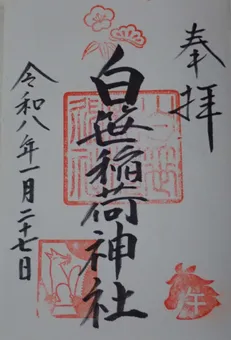 奉拝
白笹稲荷神社
令和八年一月二十七日
午